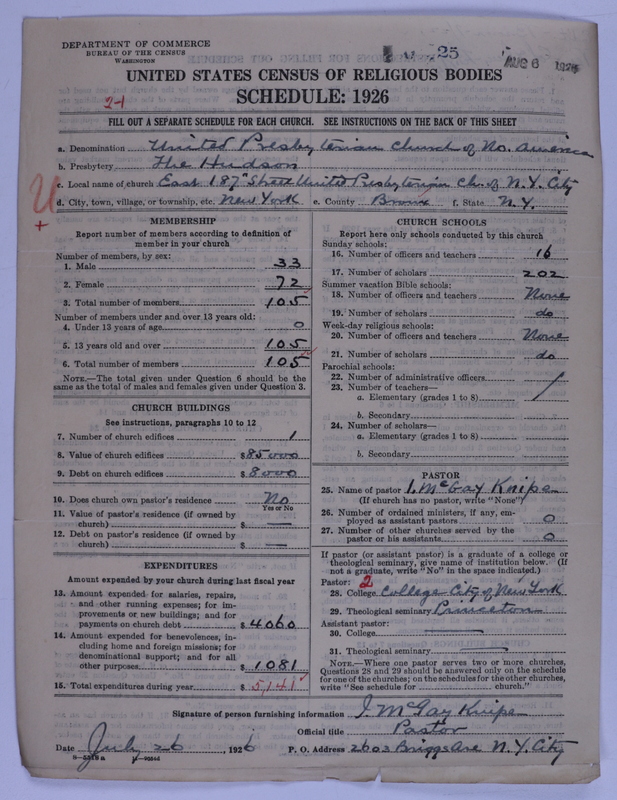 DEPARTMENT OF COMMERCE
BUREAU OF THE CENSUS
WASHINGTON
25
AUG 6 1926
UNITED STATES CENSUS OF RELIGIOUS BODIES
SCHEDULE: 1926
2-1
FILL OUT A SEPARATE SCHEDULE FOR EACH CHURCH. SEE INSTRUCTIONS ON THE BACK OF THIS SHEET
a. Denomination United Presbyterian Church of No. America
b. Presbytery The Hudson
c. Local name of church East 187" Street United Presbyterian Ch. of N.Y. City
d. City, town, village, or township, etc. New York e. County Bronx f. State N.Y.
MEMBERSHIP
Report number of members according to definition of
member in your church
Number of members, by sex:
1. Male 33
2. Female 72
3. Total number of members 105
Number of members under and over 13 years old:
4. Under 13 years of age 0
5. 13 years old and over 105
6. Total number of members 105
NOTE.—The total given under Question 6 should be
same as the total of males and females given under Question 3.
CHURCH BUILDINGS
See instructions, paragraphs 10 to 12
7. Number of church edifices 1
8. Value of church edifices $85000
9. Debt on church edifices $8000
10. Does church own pastor's residence No
Yes or No
11. Value of pastor's residence (if owned by
church) $ —
12. Debt on pastor's residence (if owned by
church) $ —
EXPENDITURES
Amount expended by your church during last fiscal year
13. Amount expended for salaries, repairs,
and other running expenses; for im-
provements or new buildings; and for
payments on church debt $4060
14. Amount expended for benevolences, in-
cluding home and foreign missions; for
denominational support; and for all
other purposes $1081
15. Total expenditures during year $5,141
CHURCH SCHOOLS
Report here only schools conducted by this church
Sunday schools:
16. Number of officers and teachers 16
17. Number of scholars 202
Summer vacation Bible schools:
18. Number of officers and teachers None
19. Number of scholars do
Week-day religious schools:
20. Number of officers and teachers None
21. Number of scholars do
Parochial schools:
22. Number of administrative officers
23. Number of teachers—
a. Elementary (grades 1 to 8)
b. Secondary
24. Number of scholars—
a. Elementary (grades 1 to 8)
b. Secondary
PASTOR
25. Name of pastor I. McGay Knipe
(If church has no pastor, write "None")
26. Number of ordained ministers, if any, em-
ployed as assistant pastors 0
27. Number of other churches served by the
pastor or his assistants 0
If pastor (or assistant pastor) is a graduate of a college or
theological seminary, give name of institution below. (If
not a graduate, write "No" in the space indicated.)
Pastor: 2
28. College College City of New York
29. Theological seminary Princeton
Assistant pastor:
30. College —
31. Theological seminary —
NOTE.—Where one pastor serves two or more churches,
Questions 28 and 29 should be answered only on the schedule
for one of the churches; on the schedules for the other churches,
write "See schedule for church."
Signature of person furnishing information I. McGay Knipe
Official title Pastor
Date July 26, 1926 P. O. Address 2603 Briggs Ave N.Y. City